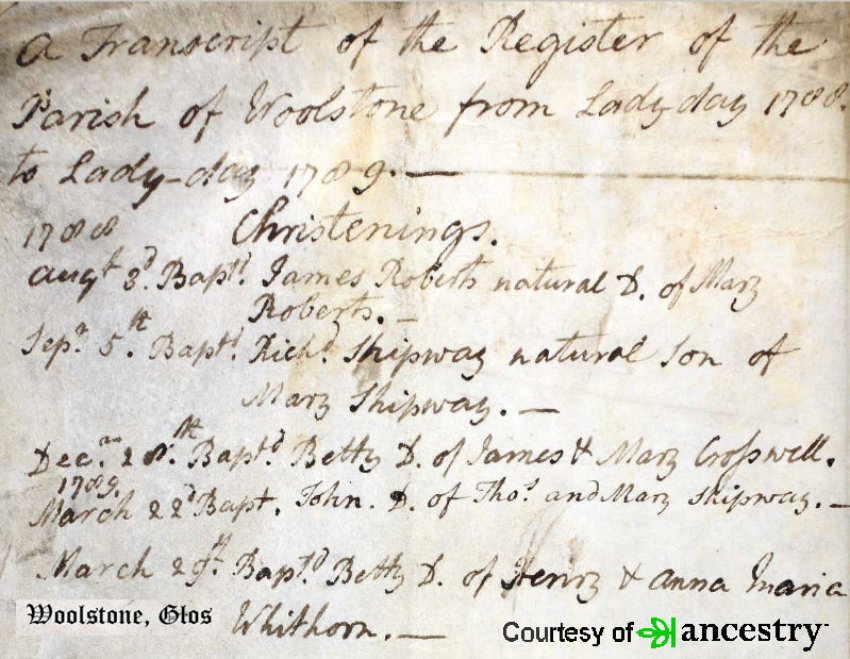 A Transcript of the Register of the
Parish of Woolstone from Lady day 1788.
to Lady-day 1789.—
1788 Christenings.
Augt 3d. Baptd. James Roberts natural D. of Mary
Roberts.—
Sepr. 5th. Baptd. Richd. Shipway natural Son of
Mary Shipway.—
Decr. 28th. Baptd. Betty D. of James & Mary Crosswell.
1789.
March 22d Bapt. John. D. of Thos. and Mary Shipway.—
March 29th. Baptd. Betty D. of Henry & Anna Maria
Whithorn.—
Woolstone, Glos
Courtesy of ancestry